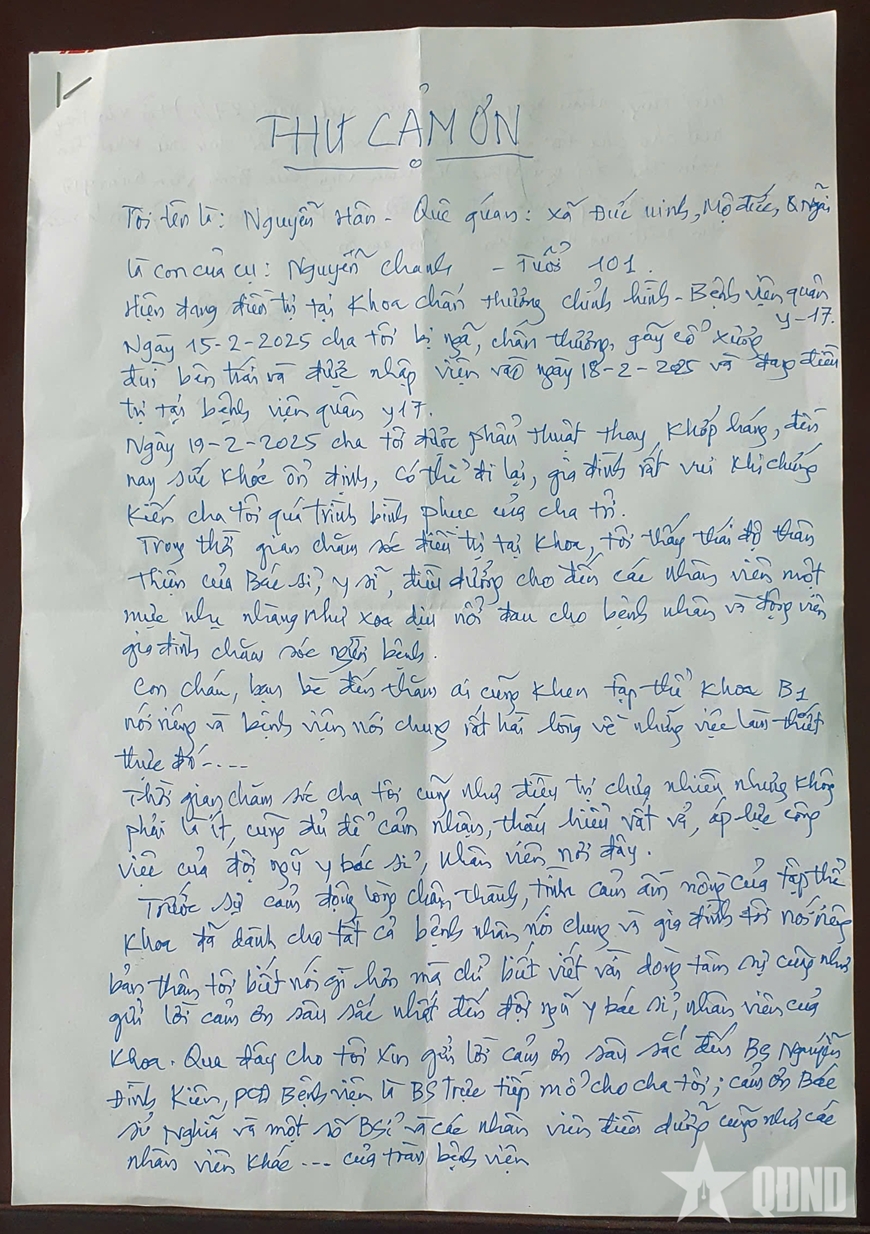 THƯ CẢM ƠN
Tôi tên là: Nguyễn Hân - Quê quán: xã Đức Minh, Mộ Đức, Q Ngãi
là con của cụ: Nguyễn Chanh - Tuổi 101.
Hiện đang điều trị tại Khoa chấn thương chỉnh hình - Bệnh viện quân
y-17.
Ngày 15-2-2025 cha tôi bị ngã, chấn thương, gãy cổ xương
đùi bên trái và được nhập viện vào ngày 18-2-2025 và đang điều
trị tại bệnh viện quân y17.
Ngày 19-2-2025 cha tôi được phẩu thuật thay khớp háng, đến
nay sức khỏe ổn định, có thể đi lại, gia đình rất vui khi chứng
kiến cha tôi quá trình bình phục của cha tôi.
Trong thời gian chăm sóc điều trị tại khoa, tôi thấy thái độ thân
thiện của Bác sĩ, y sĩ, điều dưỡng cho đến các nhân viên một
mực nhẹ nhàng như xoa dịu nổi đau cho bệnh nhân và động viên
gia đình chăm sóc người bệnh.
Con cháu, bạn bè đến thăm ai cũng khen tập thể khoa B1
nói riêng và bệnh viện nói chung rất hài lòng về những việc làm thiết
thực đó....
Thời gian chăm sóc cha tôi cũng như điều trị chưa nhiều nhưng không
phải là ít, cũng đủ để cảm nhận, thấu hiểu vất vả, áp lực công
việc của đội ngũ y bác sĩ, nhân viên nơi đây.
Trước sự cảm động lòng chân thành, tình cảm ấm nồng của tập thể
khoa đã dành cho tất cả bệnh nhân nói chung và gia đình tôi nói riêng
bản thân tôi biết nói gì hơn mà chỉ biết viết vài dòng tâm sự cũng như
gửi lời cảm ơn sâu sắc nhất đến đội ngũ y bác sĩ, nhân viên của
khoa. Qua đây cho tôi xin gửi lời cảm ơn sâu sắc đến BS Nguyễn
Đình Kiên, PGĐ Bệnh viện là BS trực tiếp mổ cho cha tôi; cảm ơn Bác
sĩ Nghĩa và một số BSĩ và các nhân viên điều dưỡng cũng như các
nhân viên khác ... của toàn bệnh viện
QĐND